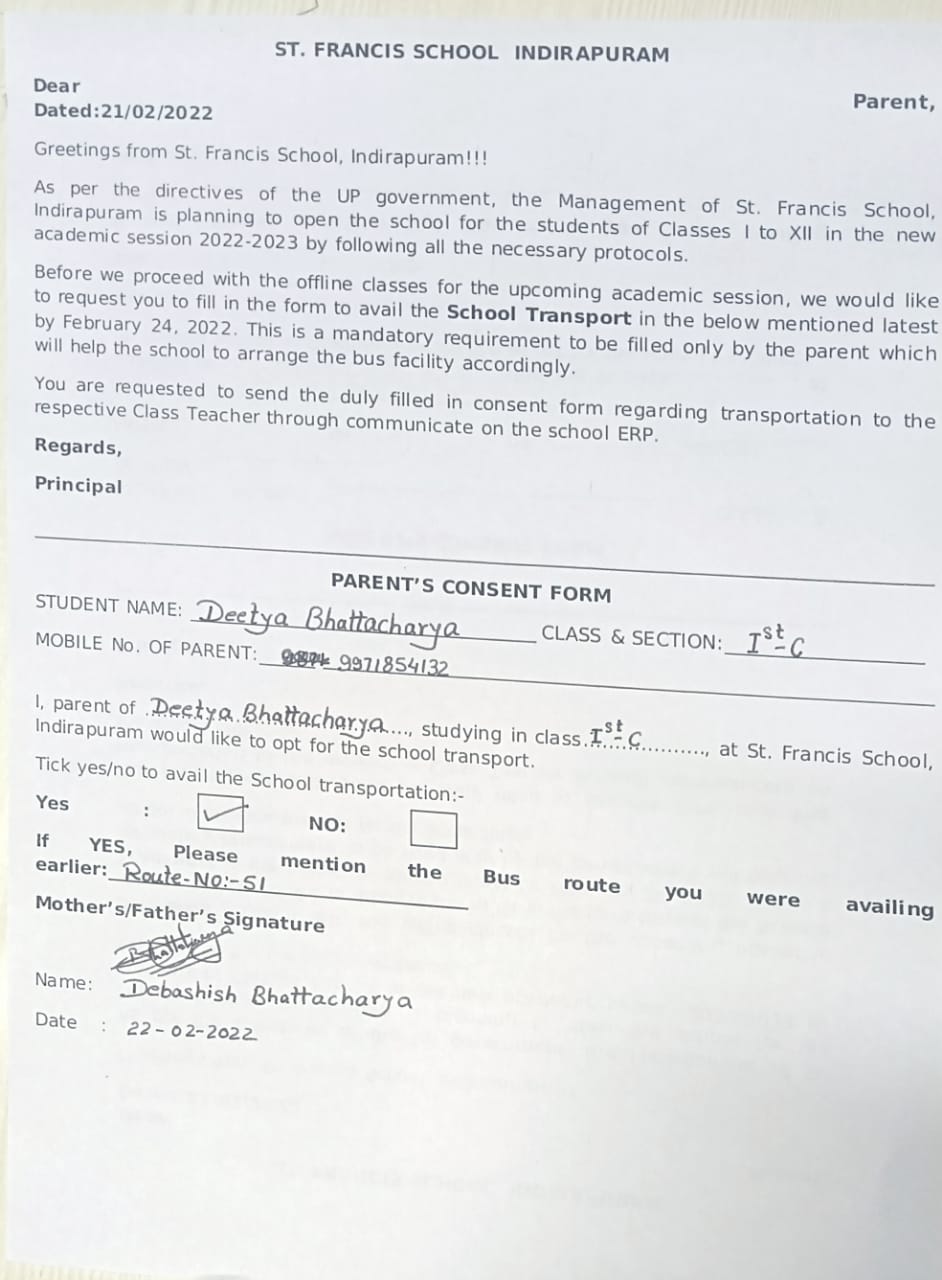 ST. FRANCIS SCHOOL INDIRAPURAM
Dear Parent,
Dated:21/02/2022
Greetings from St. Francis School, Indirapuram!!!
As per the directives of the UP government, the Management of St. Francis School,
Indirapuram is planning to open the school for the students of Classes I to XII in the new
academic session 2022-2023 by following all the necessary protocols.
Before we proceed with the offline classes for the upcoming academic session, we would like
to request you to fill in the form to avail the School Transport in the below mentioned latest
by February 24, 2022. This is a mandatory requirement to be filled only by the parent which
will help the school to arrange the bus facility accordingly.
You are requested to send the duly filled in consent form regarding transportation to the
respective Class Teacher through communicate on the school ERP.
Regards,
Principal
PARENT'S CONSENT FORM
STUDENT NAME: Deetya Bhattacharya CLASS & SECTION: Ist-C
MOBILE No. OF PARENT: 9971854132
I, parent of Deetya Bhattacharya...., studying in class Ist-C..........., at St. Francis School,
Indirapuram would like to opt for the school transport.
Tick yes/no to avail the School transportation:-
Yes : NO:
If YES, Please mention the Bus route you were availing
earlier: Route-NO:-51
Mother's/Father's Signature
Bhattacharya
Name: Debashish Bhattacharya
Date : 22-02-2022